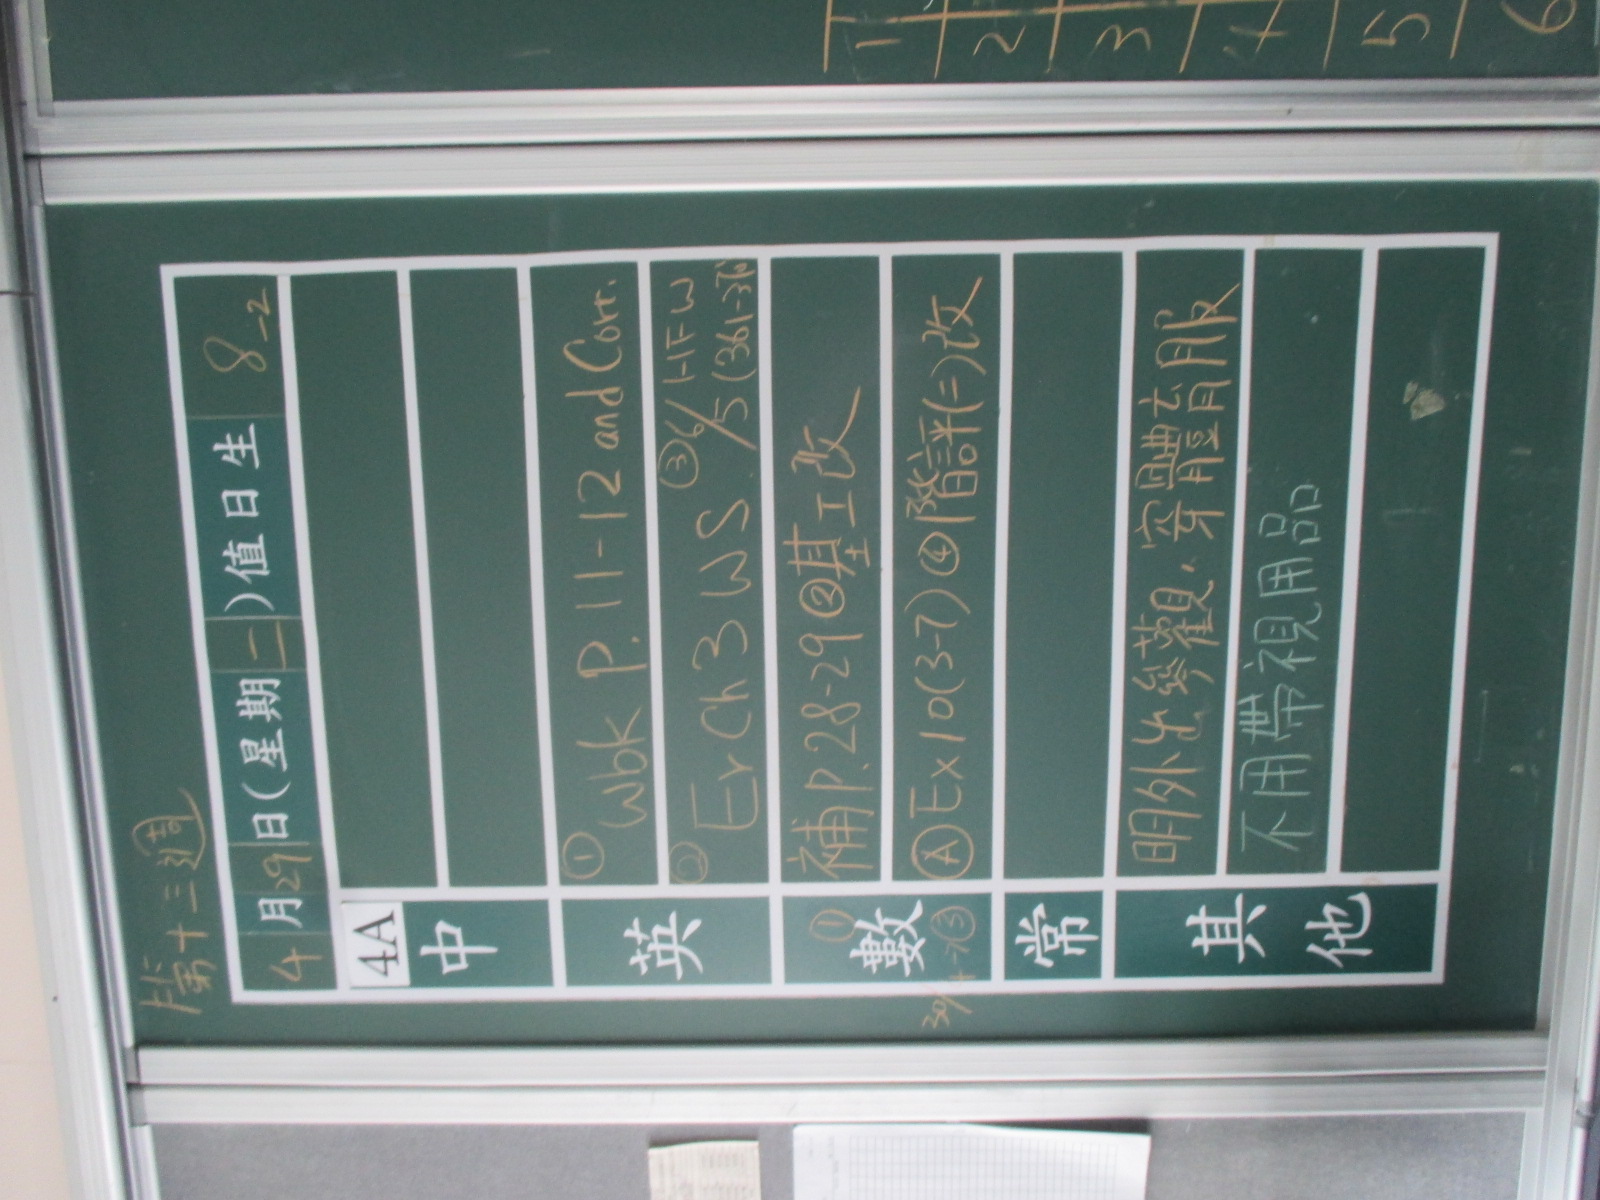 1 2 3 4 5 6
第十三週
4月29日(星期二)值日生 8-2
4A
中
英
① Wbk P. 11-12 and Corr.
② Er Ch 3 WS ③ 6/5 1-1FW (361-376)
數
① 補P.28-29 ② 基工改
30/4-③
Ⓐ Ex 10(3-7) ④ 階評(二)改
常
其他
明外出參觀,穿體育服
不用帶視用品